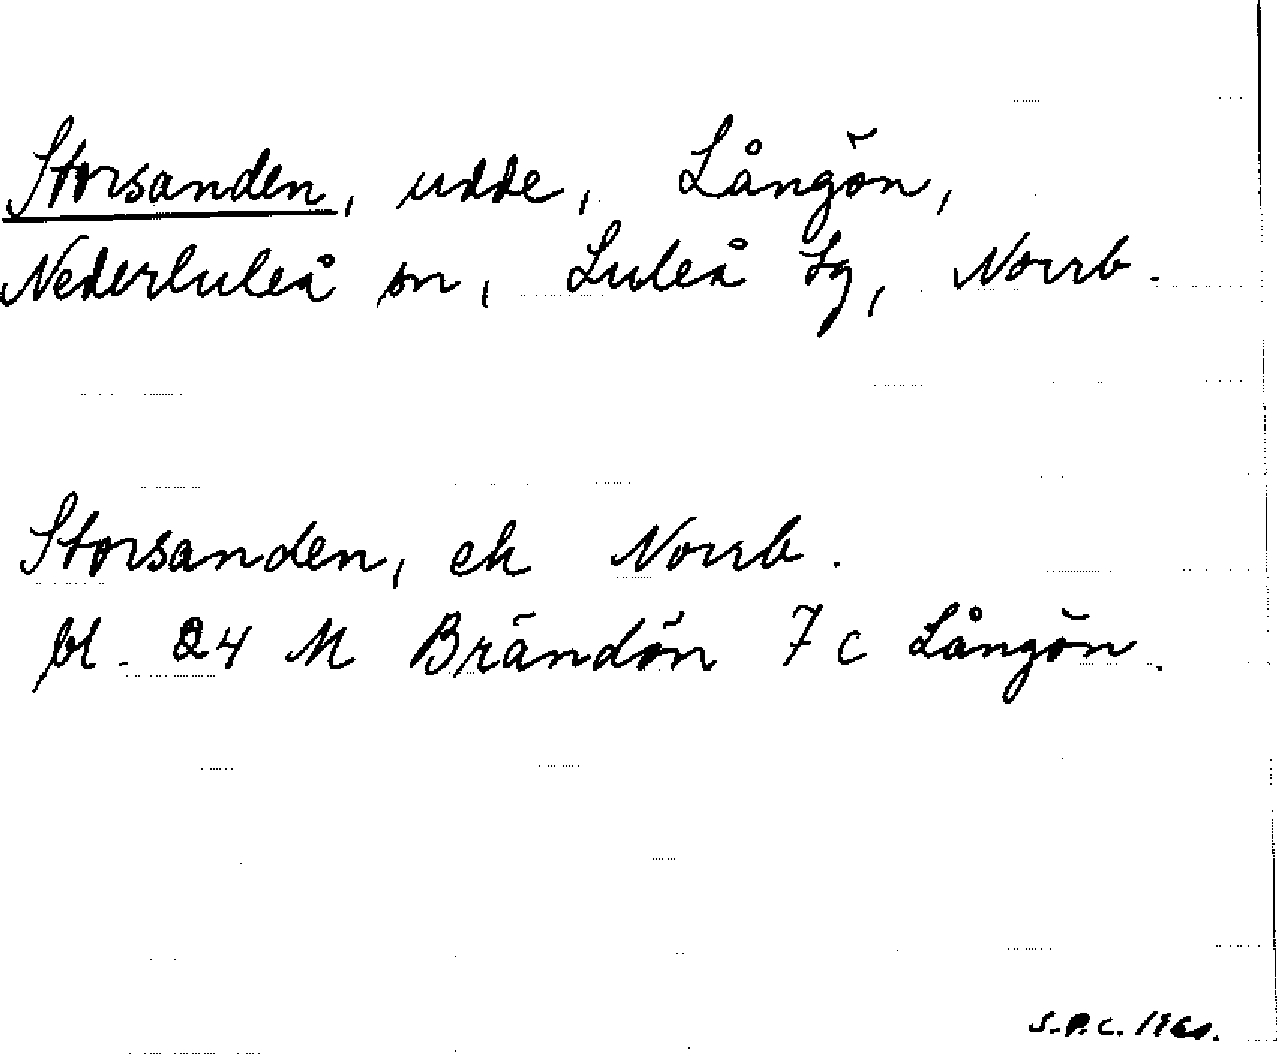 Storsanden, udde, Långön,
Nederluleå sn, Luleå tg, Norrb.
Storsanden, ek Norrb.
bl. 24 M Brändön 7 c Långön.